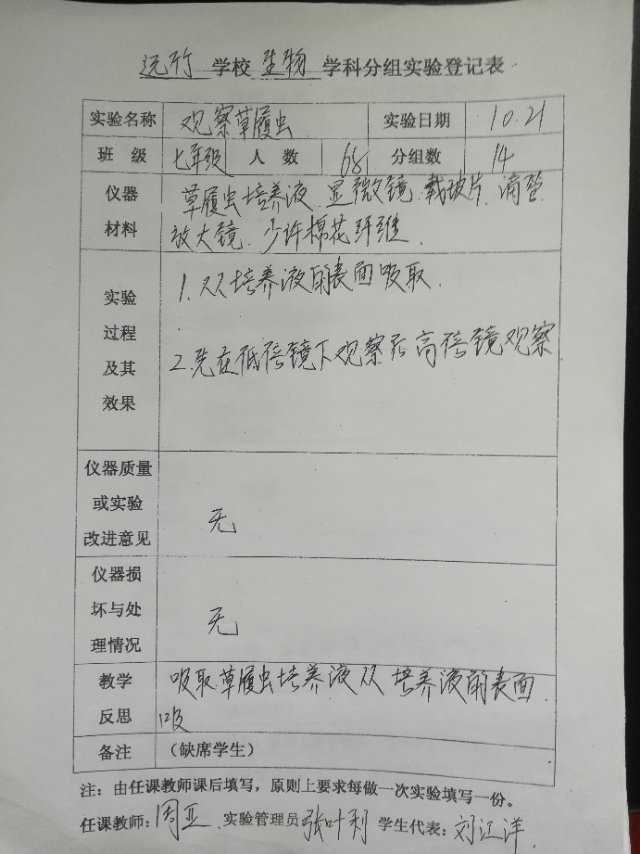 远行 学校 生物 学科分组实验登记表
实验名称 观察草履虫 实验日期 10.21
班 级 七年级 人 数 68 分组数 14
仪器 草履虫培养液 显微镜 载玻片 滴管
材料 放大镜 少许棉花纤维
实验 1.从培养液的表面吸取.
过程
及其 2.先在低倍镜下观察后高倍镜观察
效果
仪器质量
或实验
改进意见 无
仪器损
坏与处 无
理情况
教学 吸取草履虫培养液从培养液的表面
反思 吸
备注 （缺席学生）
注：由任课教师课后填写，原则上要求每做一次实验填写一份。
任课教师：周亚 实验管理员张叶利 学生代表：刘江洋